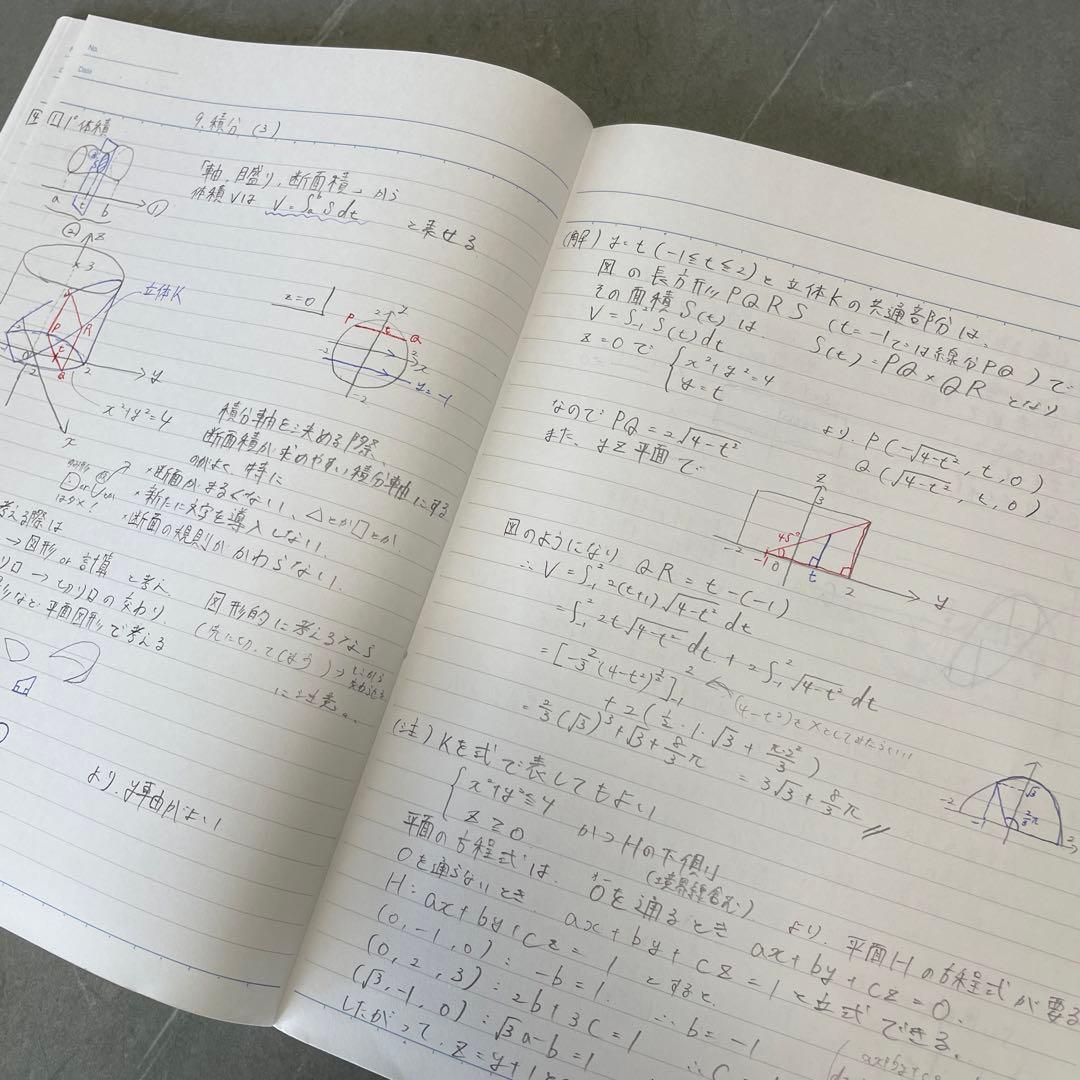 No.
Date
9. 積分 (3)
4 1 1° 体積
「軸、目盛り、断面積」から
体積Vは V=∫ₐᵇ S dt と表せる
a t b ①
②
z
3
立体K
P
R
t
Q
2
2
y
x²+y²=4
x
z=0
y
2
P t Q
-2 2 x
y=-1
-2
積分軸を決める際
断面積が求めやすい積分軸にする
のがよく 特に
・断面がまるくない、△とか□とか
・新たに文字を導入しない
・断面の規則がかわらない
考える際は
→図形 or 計算 と考え
り口 → 切り口の交わり
など平面図形で考える
図形的に考えるなら
に注意。
より、y軸がよい
(解) y=t (-1≦t≦2) と立体Kの共通部分は、
図の長方形PQRS (t=-1では線分PQ) で
その面積S(t)は S(t)=PQ×QR となり
V=∫₋₁² S(t)dt
z=0で { x²+y²=4
y=t
より、P(-√4-t², t, 0)
Q(√4-t², t, 0)
なので PQ=2√4-t²
また、yz平面で
z
3
-2 -1 0 45° t 2 y
図のようになり QR=t-(-1)
∴V=∫₋₁² 2(t+1)√4-t² dt
=∫₋₁² 2t√4-t² dt + 2∫₋₁² √4-t² dt
=[-2/3(4-t²)^3/2]₋₁²
+2(1/2・1・√3+π・2²/3)
=2/3(√3)³+√3+8/3π =3√3+8/3π
-2 -1 √3 2/3π 2
(注) Kを式で表してもよい
{ x²+y²≦4
z≧0 かつHの下側
(境界線含む)
より、平面Hの方程式が要る
平面の方程式は、Oを通るとき ax+by+cz=0.
Oを通らないとき ax+by+cz=1と立式できる。
H: ax+by+cz=1 とすると、
(0,-1,0): -b=1. ∴b=-1
(0,2,3): 2b+3c=1
(√3,-1,0): √3a-b=1
したがって、z=y+1